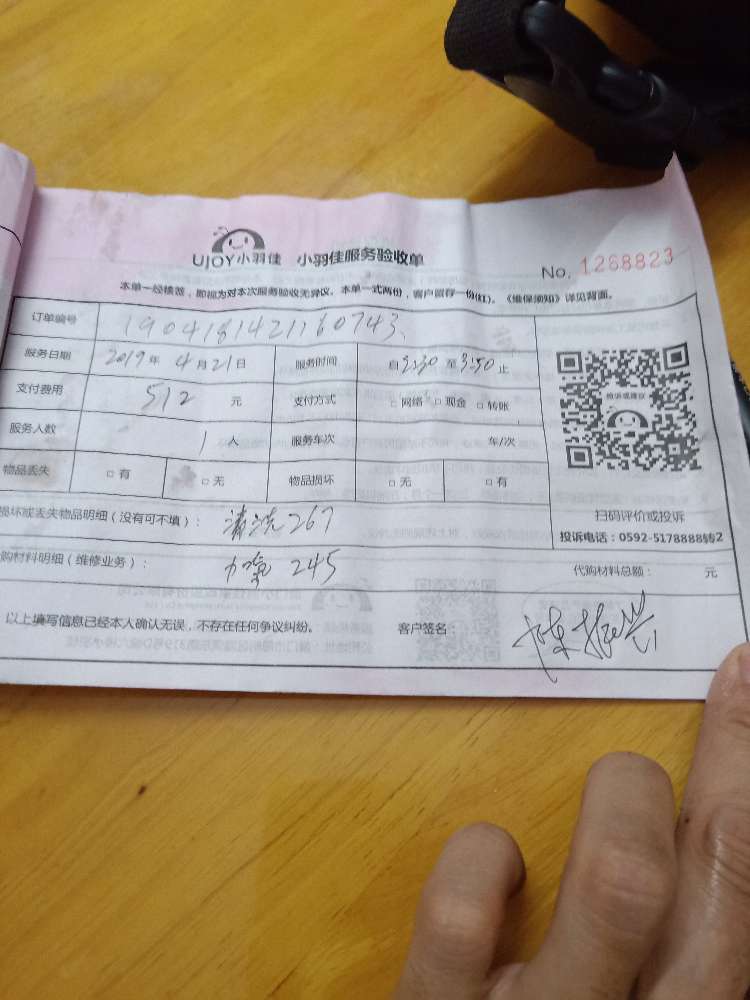 UJOY小羽佳 小羽佳服务验收单
No. 1268823
本单一经签, 即视为对本次服务验收无异议。本单一式两份, 客户留存一份(红)。《维保须知》详见背面。
订单编号 190418142116 0743
服务日期 2019年 4月21日 服务时间 自2:30至3:50止
支付费用 512 元 支付方式 □网络 □现金 □转账
服务人数 1人 服务车次 车/次
物品丢失 □有 □无 物品损坏 □无 □有
投诉或建议
扫码评价或投诉
投诉电话:0592-5178888转2
损坏或丢失物品明细(没有可不填): 清洗267
购材料明细(维修业务): 245 代购材料总额: 元
以上填写信息已经本人确认无误, 不存在任何争议纠纷。 客户签名: 陈振兴